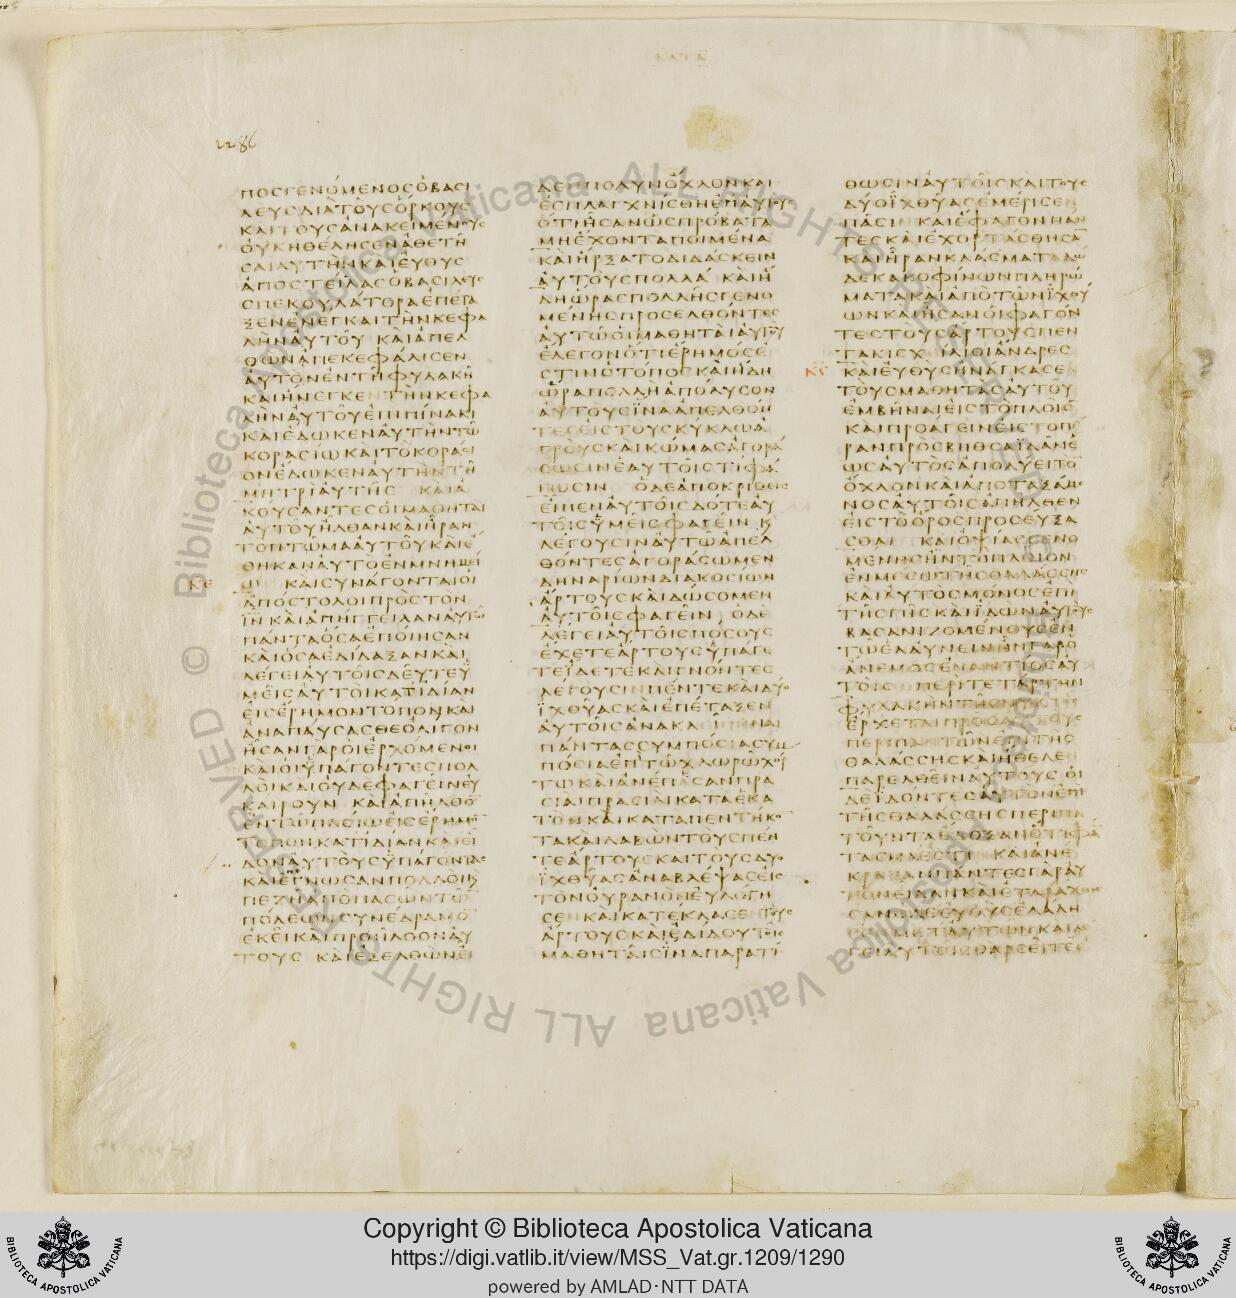 ΚΑΤΑ
1286
ΠΟΣΓΕΝΟΜΕΝΟΣΟΒΑΣΙ
ΛΕΥΣΔΙΑΤΟΥΣΟΡΚΟΥΣ
ΚΑΙΤΟΥΣΑΝΑΚΕΙΜΕΝΟΥΣ
ΟΥΚΗΘΕΛΗΣΕΝΑΘΕΤΗ
ΣΑΙΑΥΤΗΝΚΑΙΕΥΘΥΣ
ΑΠΟΣΤΕΙΛΑΣΟΒΑΣΙΛΕΥ
ΣΠΕΚΟΥΛΑΤΟΡΑΕΠΕΤΑ
ΞΕΝΕΝΕΓΚΑΙΤΗΝΚΕΦΑ
ΛΗΝΑΥΤΟΥ ΚΑΙΑΠΕΛ
ΘΩΝΑΠΕΚΕΦΑΛΙΣΕΝ
ΑΥΤΟΝΕΝΤΗΦΥΛΑΚΗ
ΚΑΙΗΝΕΓΚΕΝΤΗΝΚΕΦΑ
ΛΗΝΑΥΤΟΥΕΠΙΠΙΝΑΚΙ
ΚΑΙΕΔΩΚΕΝΑΥΤΗΝΤΩ
ΚΟΡΑΣΙΩΚΑΙΤΟΚΟΡΑΣΙ
ΟΝΕΔΩΚΕΝΑΥΤΗΝΤΗ
ΜΗΤΡΙΑΥΤΗΣ ΚΑΙΑ
ΚΟΥΣΑΝΤΕΣΟΙΜΑΘΗΤΑΙ
ΑΥΤΟΥΗΛΘΑΝΚΑΙΗΡΑΝ
ΤΟΠΤΩΜΑΑΥΤΟΥΚΑΙΕ
ΘΗΚΑΝΑΥΤΟΕΝΜΝΗΜΕΙ
ΚΕ Ω ΚΑΙΣΥΝΑΓΟΝΤΑΙΟΙ
ΑΠΟΣΤΟΛΟΙΠΡΟΣΤΟΝ
ΙΝΚΑΙΑΠΗΓΓΕΙΛΑΝΑΥΤΩ
ΠΑΝΤΑΟΣΑΕΠΟΙΗΣΑΝ
ΚΑΙΟΣΑΕΔΙΔΑΞΑΝΚΑΙ
ΛΕΓΕΙΑΥΤΟΙΣΔΕΥΤΕΥ
ΜΕΙΣΑΥΤΟΙΚΑΤΙΔΙΑΝ
ΕΙΣΕΡΗΜΟΝΤΟΠΟΝΚΑΙ
ΑΝΑΠΑΥΣΑΣΘΕΟΛΙΓΟΝ
ΗΣΑΝΓΑΡΟΙΕΡΧΟΜΕΝΟΙ
ΚΑΙΟΙΥΠΑΓΟΝΤΕΣΠΟΛ
ΛΟΙΚΑΙΟΥΔΕΦΑΓΕΙΝΕΥ
ΚΑΙΡΟΥΝ ΚΑΙΑΠΗΛΘΟ
ΕΝΤΩΠΛΟΙΩΕΙΣΕΡΗΜΟ
ΤΟΠΟΝΚΑΤΙΔΙΑΝΚΑΙΕΙ
ΔΟΝΑΥΤΟΥΣΥΠΑΓΟΝΤΑΣ
ΚΑΙΕΓΝΩΣΑΝΠΟΛΛΟΙΚ
ΠΕΖΗΑΠΟΠΑΣΩΝΤΩ
ΠΟΛΕΩΝΣΥΝΕΔΡΑΜΟ
ΕΚΕΙΚΑΙΠΡΟΗΛΘΟΝΑΥ
ΤΟΥΣ ΚΑΙΕΞΕΛΘΩΝΕΙ
ΔΕΝΠΟΛΥΝΟΧΛΟΝΚΑΙ
ΕΣΠΛΑΓΧΝΙΣΘΗΕΠΑΥΤΟΥΣ
ΟΤΙΗΣΑΝΩΣΠΡΟΒΑΤΑ
ΜΗΕΧΟΝΤΑΠΟΙΜΕΝΑ
ΚΑΙΗΡΞΑΤΟΔΙΔΑΣΚΕΙΝ
ΑΥΤΟΥΣΠΟΛΛΑ ΚΑΙΗ
ΔΗΩΡΑΣΠΟΛΛΗΣΓΕΝΟ
ΜΕΝΗΣΠΡΟΣΕΛΘΟΝΤΕΣ
ΑΥΤΩΟΙΜΑΘΗΤΑΙΑΥΤΟΥ
ΕΛΕΓΟΝΟΤΙΕΡΗΜΟΣΕ
ΣΤΙΝΟΤΟΠΟΣΚΑΙΗΔΗ
ΩΡΑΠΟΛΛΗΑΠΟΛΥΣΟΝ
ΑΥΤΟΥΣΙΝΑΑΠΕΛΘΟΝ
ΤΕΣΕΙΣΤΟΥΣΚΥΚΛΩΑ
ΓΡΟΥΣΚΑΙΚΩΜΑΣΑΓΟΡΑ
ΣΩΣΙΝΕΑΥΤΟΙΣΤΙΦΑ
ΓΩΣΙΝ ΟΔΕΑΠΟΚΡΙΘΕΙΣ
ΕΙΠΕΝΑΥΤΟΙΣΔΟΤΕΑΥ
ΤΟΙΣΥΜΕΙΣΦΑΓΕΙΝ Κ
ΛΕΓΟΥΣΙΝΑΥΤΩΑΠΕΛ
ΘΟΝΤΕΣΑΓΟΡΑΣΩΜΕΝ
ΔΗΝΑΡΙΩΝΔΙΑΚΟΣΙΩΝ
ΑΡΤΟΥΣΚΑΙΔΩΣΟΜΕΝ
ΑΥΤΟΙΣΦΑΓΕΙΝ ΟΔΕ
ΛΕΓΕΙΑΥΤΟΙΣΠΟΣΟΥΣ
ΕΧΕΤΕΑΡΤΟΥΣΥΠΑΓΕ
ΤΕΙΔΕΤΕΚΑΙΓΝΟΝΤΕΣ
ΛΕΓΟΥΣΙΝΠΕΝΤΕΚΑΙΔΥΟ
ΙΧΘΥΑΣΚΑΙΕΠΕΤΑΞΕΝ
ΑΥΤΟΙΣΑΝΑΚΛΙΘΗΝΑΙ
ΠΑΝΤΑΣΣΥΜΠΟΣΙΑΣΥΜ
ΠΟΣΙΑΕΠΙΤΩΧΛΩΡΩΧΟΡ
ΤΩΚΑΙΑΝΕΠΕΣΑΝΠΡΑ
ΣΙΑΙΠΡΑΣΙΑΙΚΑΤΑΕΚΑ
ΤΟΝΚΑΙΚΑΤΑΠΕΝΤΗΚΟ
ΤΑΚΑΙΛΑΒΩΝΤΟΥΣΠΕΝ
ΤΕΑΡΤΟΥΣΚΑΙΤΟΥΣΔΥΟ
ΙΧΘΥΑΣΑΝΑΒΛΕΨΑΣΕΙΣ
ΤΟΝΟΥΡΑΝΟΝΕΥΛΟΓΗ
ΣΕΝΚΑΙΚΑΤΕΚΛΑΣΕΝΤΟΥΣ
ΑΡΤΟΥΣΚΑΙΕΔΙΔΟΥΤΟΙΣ
ΜΑΘΗΤΑΙΣΙΝΑΠΑΡΑΤΙ
ΘΩΣΙΝΑΥΤΟΙΣΚΑΙΤΟΥΣ
ΔΥΟΙΧΘΥΑΣΕΜΕΡΙΣΕΝ
ΠΑΣΙΝ ΚΑΙΕΦΑΓΟΝΠΑΝ
ΤΕΣΚΑΙΕΧΟΡΤΑΣΘΗΣΑ
ΚΑΙΗΡΑΝΚΛΑΣΜΑΤΑΔΩ
ΔΕΚΑΚΟΦΙΝΩΝΠΛΗΡΩ
ΜΑΤΑΚΑΙΑΠΟΤΩΝΙΧΘΥ
ΩΝΚΑΙΗΣΑΝΟΙΦΑΓΟΝ
ΤΕΣΤΟΥΣΑΡΤΟΥΣΠΕΝ
ΤΑΚΙΣΧΙΛΙΟΙΑΝΔΡΕΣ
ΚϚ ΚΑΙΕΥΘΥΣΗΝΑΓΚΑΣΕ
ΤΟΥΣΜΑΘΗΤΑΣΑΥΤΟΥ
ΕΜΒΗΝΑΙΕΙΣΤΟΠΛΟΙΟ
ΚΑΙΠΡΟΑΓΕΙΝΕΙΣΤΟΠΕ
ΡΑΝΠΡΟΣΒΗΘΣΑΙΔΑΝΕ
ΩΣΑΥΤΟΣΑΠΟΛΥΕΙΤΟ
ΟΧΛΟΝΚΑΙΑΠΟΤΑΞΑΜΕ
ΝΟΣΑΥΤΟΙΣΑΠΗΛΘΕΝ
ΕΙΣΤΟΟΡΟΣΠΡΟΣΕΥΞΑ
ΣΘΑΙ ΚΑΙΟΨΙΑΣΓΕΝΟ
ΜΕΝΗΣΗΝΤΟΠΛΟΙΟΝ
ΕΝΜΕΣΩΤΗΣΘΑΛΑΣΣΗΣ
ΚΑΙΑΥΤΟΣΜΟΝΟΣΕΠΙ
ΤΗΣΓΗΣΚΑΙΙΔΩΝΑΥΤΟΥΣ
ΒΑΣΑΝΙΖΟΜΕΝΟΥΣΕΝ
ΤΩΕΛΑΥΝΕΙΝΗΝΓΑΡΟ
ΑΝΕΜΟΣΕΝΑΝΤΙΟΣΑΥ
ΤΟΙΣ ΠΕΡΙΤΕΤΑΡΤΗΝ
ΦΥΛΑΚΗΝΤΗΣΝΥΚΤΟΣ
ΕΡΧΕΤΑΙΠΡΟΣΑΥΤΟΥΣ
ΠΕΡΙΠΑΤΩΝΕΠΙΤΗΣ
ΘΑΛΑΣΣΗΣΚΑΙΗΘΕΛΕ
ΠΑΡΕΛΘΕΙΝΑΥΤΟΥΣ ΟΙ
ΔΕΙΔΟΝΤΕΣΑΥΤΟΝΕΠΙ
ΤΗΣΘΑΛΑΣΣΗΣΠΕΡΙΠΑ
ΤΟΥΝΤΑΕΔΟΞΑΝΟΤΙΦΑ
ΤΑΣΜΑΕΣΤΙ ΚΑΙΑΝΕ
ΚΡΑΞΑΝΠΑΝΤΕΣΓΑΡΑΥ
ΤΟΝΕΙΔΑΝΚΑΙΕΤΑΡΑΧΘΗ
ΣΑΝΟΔΕΕΥΘΥΣΕΛΑΛΗ
ΣΕΝΜΕΤΑΥΤΩΝΚΑΙΛΕ
ΓΕΙΑΥΤΟΙΣΘΑΡΣΕΙΤΕ
Copyright © Biblioteca Apostolica Vaticana
https://digi.vatlib.it/view/MSS_Vat.gr.1209/1290
powered by AMLAD·NTT DATA
BIBLIOTECA APOSTOLICA VATICANA
BIBLIOTECA APOSTOLICA VATICANA
© Biblioteca Apostolica Vaticana ALL RIGHTS RESERVED
© Biblioteca Apostolica Vaticana ALL RIGHTS RESERVED